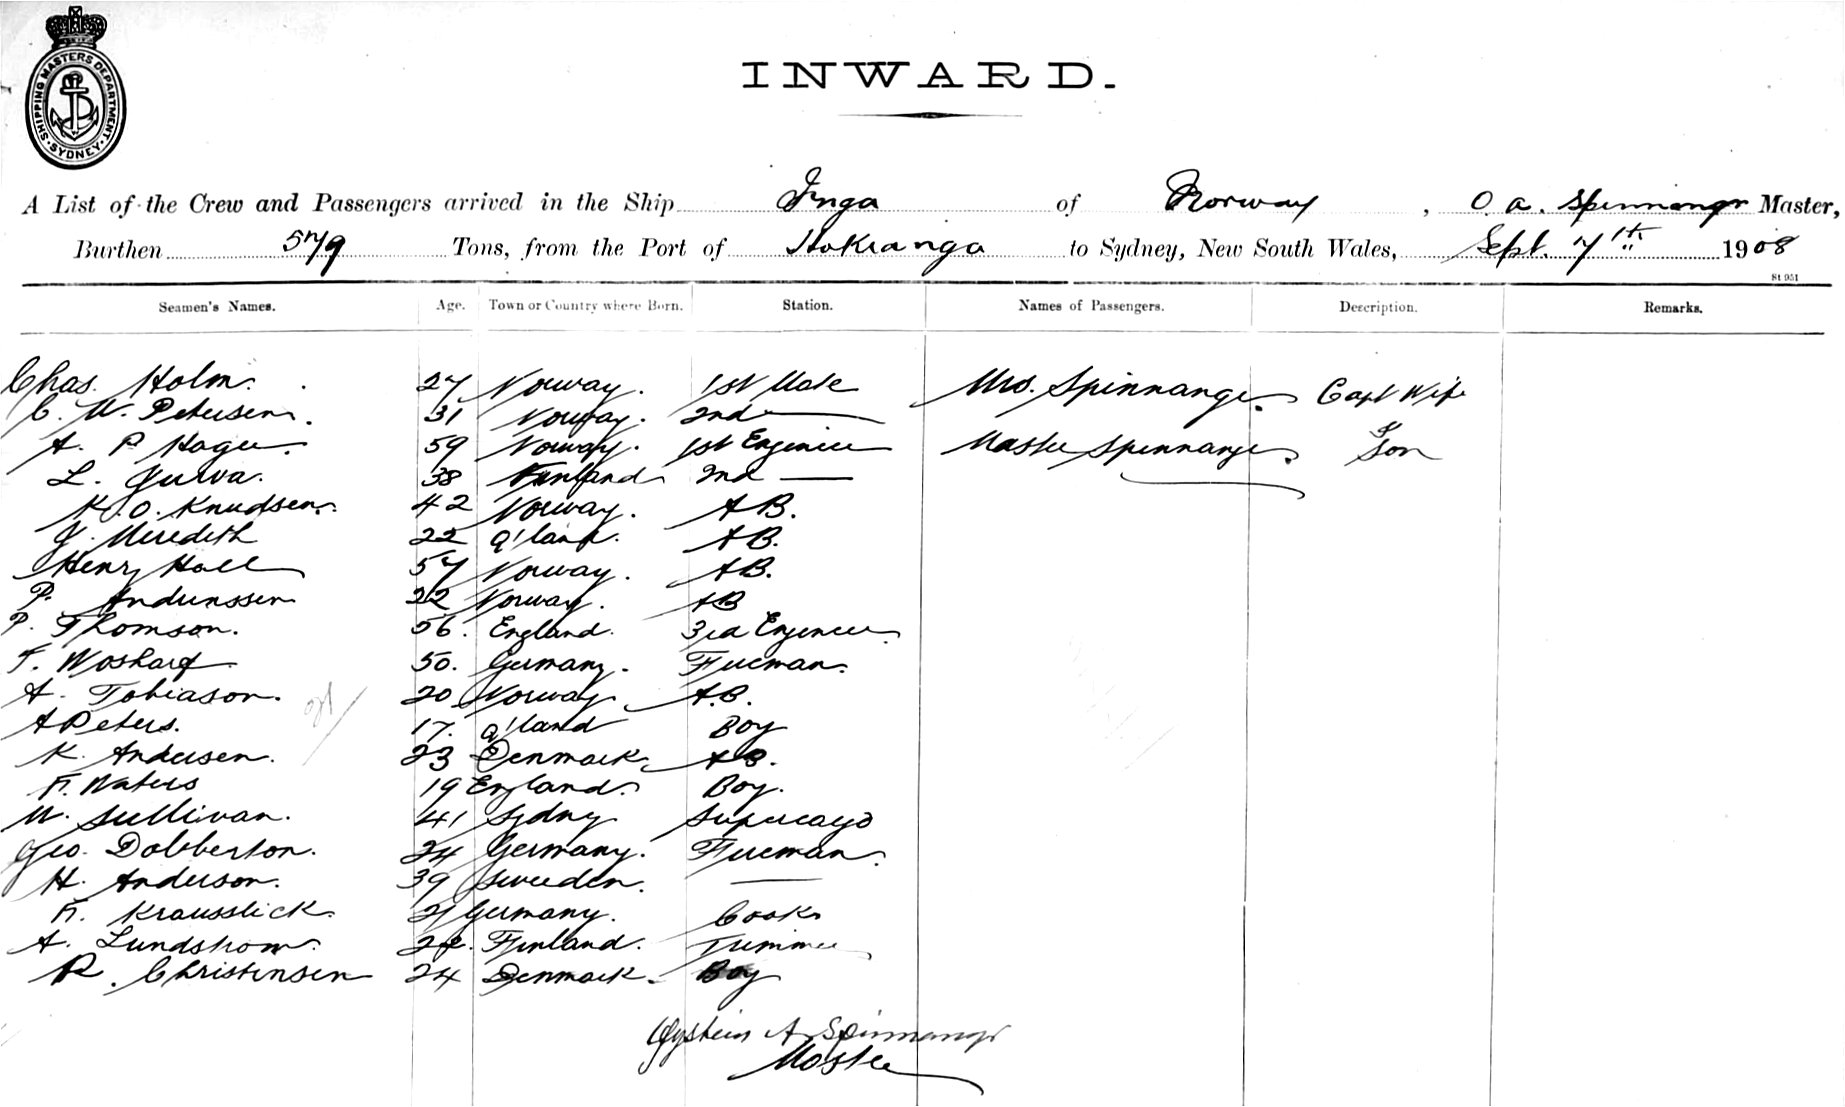 SHIPPING MASTERS DEPARTMENT
SYDNEY
INWARD.
A List of the Crew and Passengers arrived in the Ship Inga of Norway, O. A. Spinnangr Master,
Burthen 579 Tons, from the Port of Hokianga to Sydney, New South Wales, Sept. 7th 1908
St 951
Seamen's Names. Age. Town or Country where Born. Station. Names of Passengers. Description. Remarks.
Chas. Holm. 27 Norway. 1st Mate Mrs. Spinnange. Capt Wife
C. W. Petersen. 31 Norway. 2nd —
A. P. Hagen. 59 Norway. 1st Engineer Master Spinnange. Son
L. 38 Finland 2nd —
K. O. Knudsen. 42 Norway. AB.
J. Meredith 22 Q'land. AB.
Henry Hall 57 Norway. AB.
P. Anderssen 22 Norway. AB
P. Thomson. 56. England. 3rd Engineer
F. 50. Germany. Fireman.
A. Tobiason. 20 Norway A.B.
A Peters. 17. Q'land Boy
K. Andersen. 23 Denmark. AB.
F. Waters 19 England. Boy.
W. Sullivan. 41 Sydney Supercargo
Geo. Dobberton. 24 Germany. Fireman.
H. Anderson. 39 Sweeden. —
F. Krausslick. 21 Germany. Cook
A. Lundstrom. Finland. Trimmer
R. Christensen 24 Denmark. Boy
Oystein A. Spinnangr
Master